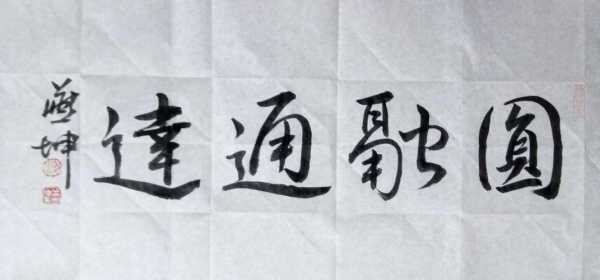 圓融通達
燕坤